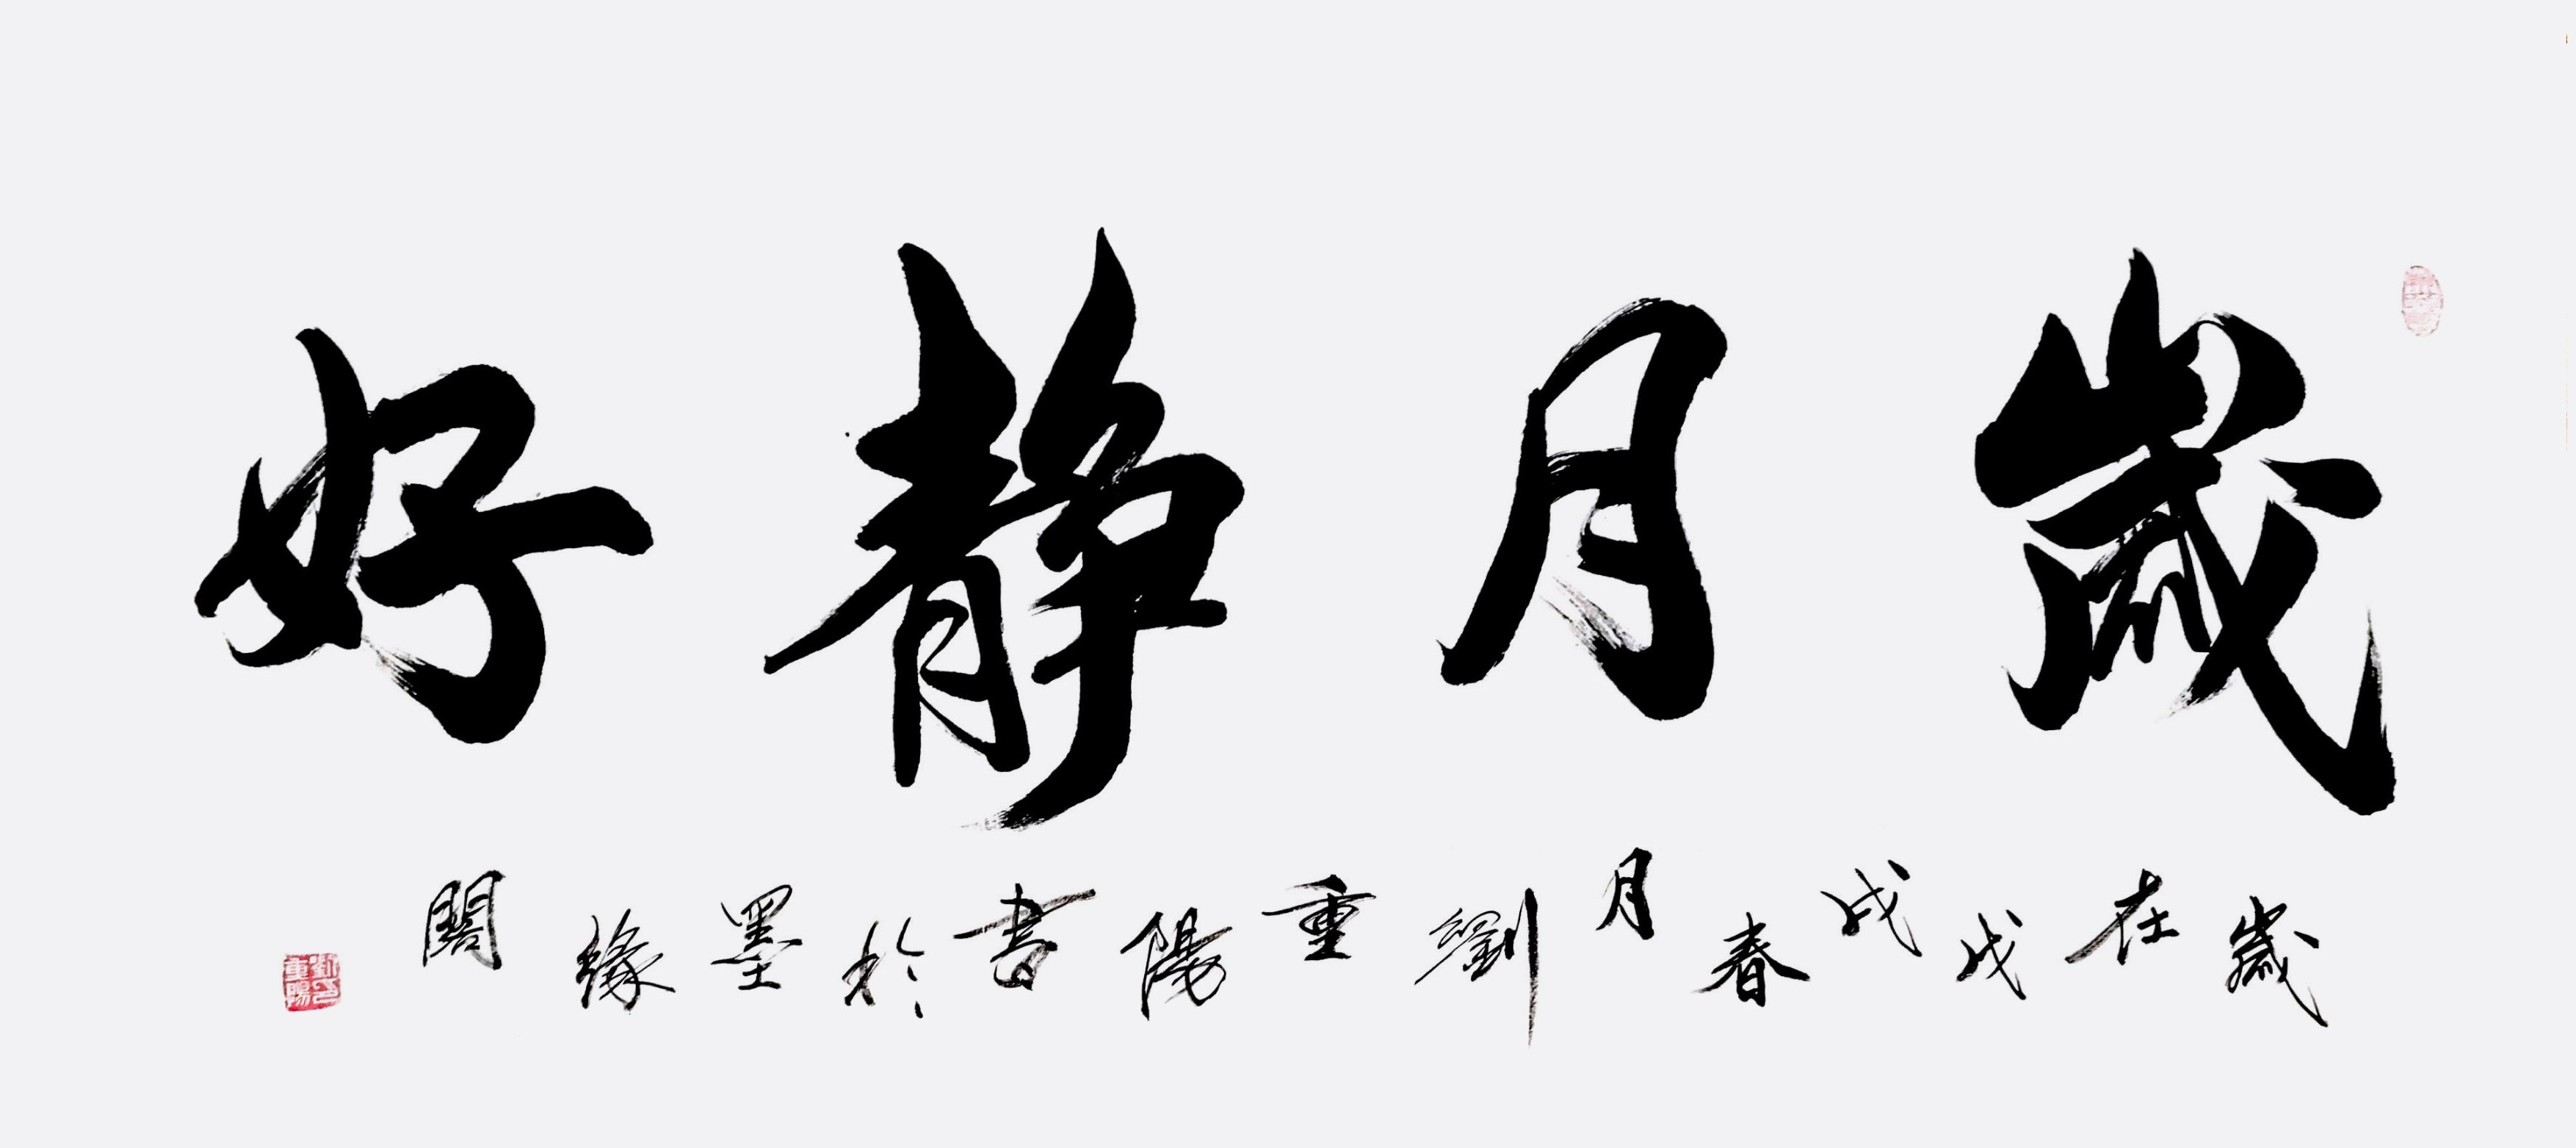 歲月静好
歲在戊戌春月劉重陽書於墨緣閣
劉重陽印